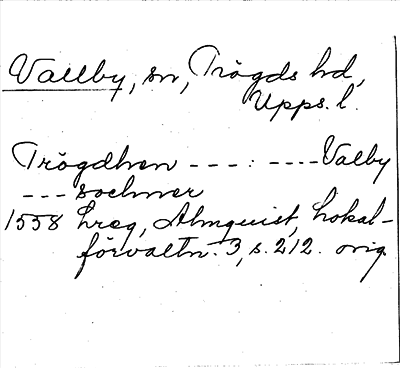 Vallby, sn, Trögds hd,
Upps. l.
Trögdhen ---:----Valby
--- sochner
1558 hreg, Almquist, Lokal-
förvaltn. 3, s. 212. orig.